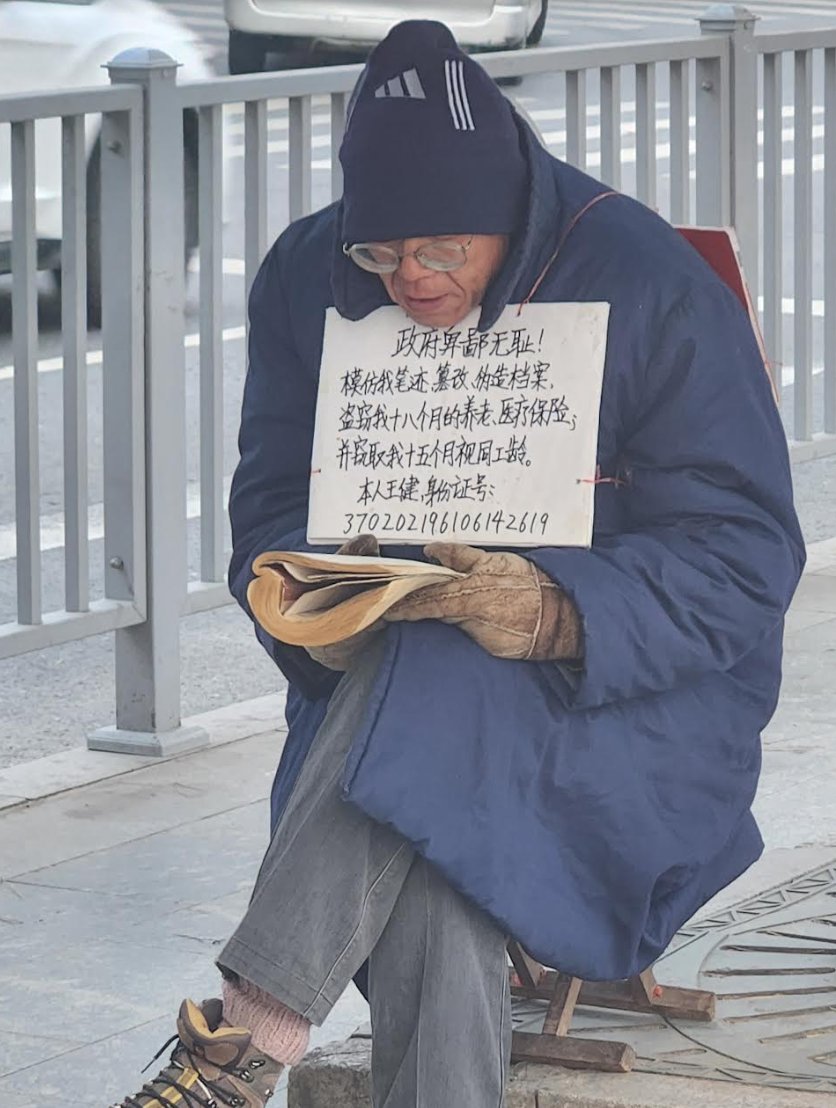 政府卑鄙无耻!
模仿我笔迹、篡改、伪造档案,
盗窃我十八个月的养老、医疗保险;
并窃取我十五个月视同工龄。
本人王健,身份证号:
370202196106142619